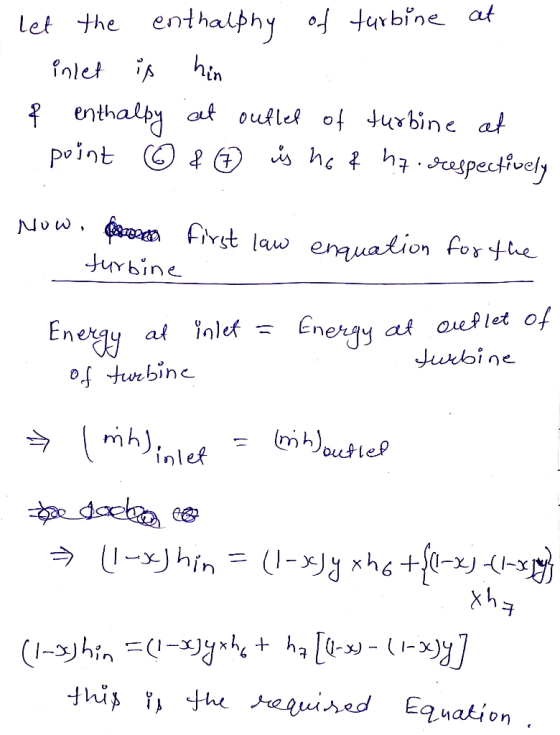 Let the enthalphy of turbine at
inlet is hin
& enthalpy at outlet of turbine at
point ⑥ & ⑦ is h6 & h7. respectively
Now. first law enquation for the
turbine
Energy at inlet = Energy at outlet of
of turbine turbine
⇒ (ṁh)inlet = (ṁh)outlet
⇒ (1-x)hin = (1-x)y × h6 + {(1-x) - (1-x)y}
× h7
(1-x)hin = (1-x)y × h6 + h7 [(1-x) - (1-x)y]
this is the required Equation.